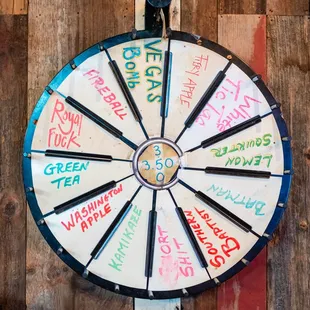 VEGAS
BOMB
THAI APPLE
White
Tic Tac
LEMON
SQUIRTER
BATMAN
SOUTHERN
BAPTIST
SHORT
SHIT
KAMIKAZE
WASHINGTON
APPLE
GREEN
TEA
Royal
FUCK
FIREBALL
3
3.50
0